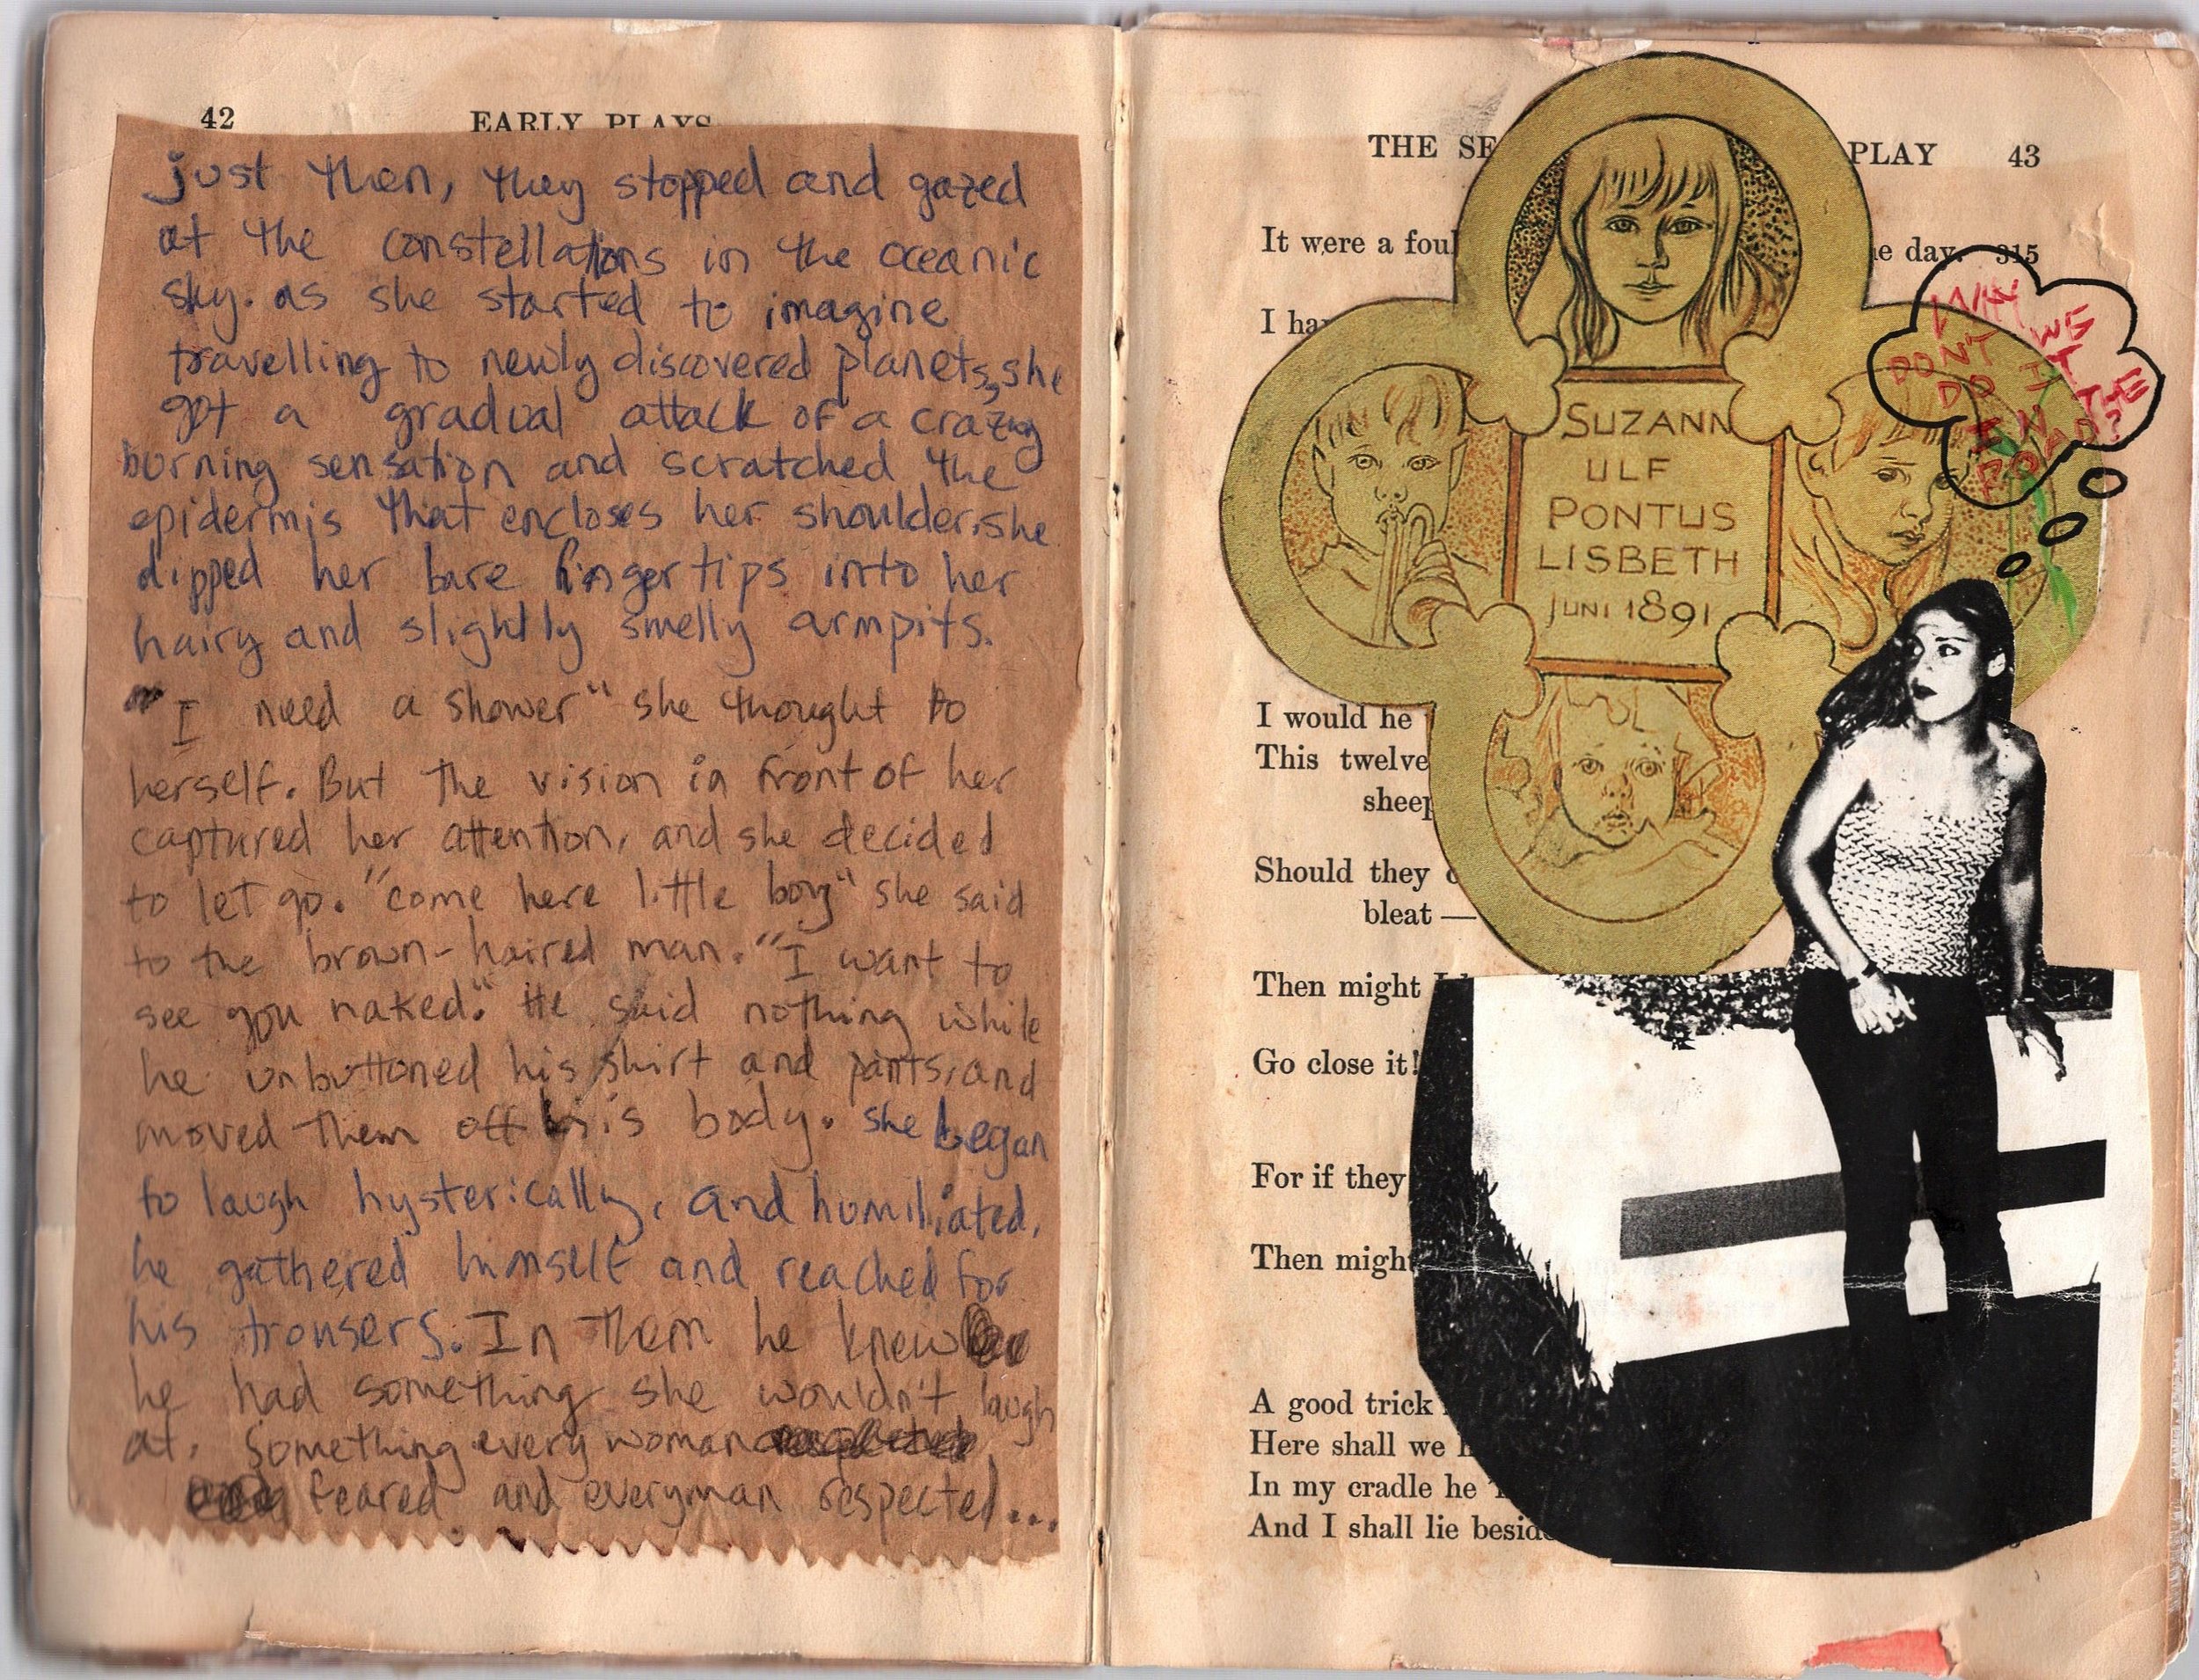 42
EARLY PLAYS
just then, they stopped and gazed
at the constellations in the oceanic
sky. as she started to imagine
travelling to newly discovered planets, she
got a gradual attack of a crazy
burning sensation and scratched the
epidermis that encloses her shoulder. she
dipped her bare fingertips into her
hairy and slightly smelly armpits.
"I need a shower" she thought to
herself. But the vision in front of her
captured her attention, and she decided
to let go. "come here little boy" she said
to the brown-haired man. "I want to
see you naked." He said nothing while
he unbuttoned his shirt and pants, and
moved them off his body. she began
to laugh hysterically, and humiliated,
he gathered himself and reached for
his trousers. In them he knew
he had something she wouldn't laugh
at. Something every woman
feared and everyman respected...
THE SE PLAY 43
It were a foul e day. 315
I ha
WHY WE
DON'T DO IT
IN THE
ROAD?
SUZANN
ULF
PONTUS
LISBETH
JUNI 1891
I would he
This twelve
sheep
Should they
bleat —
Then might I
Go close it!
For if they
Then might
A good trick
Here shall we
In my cradle he
And I shall lie beside